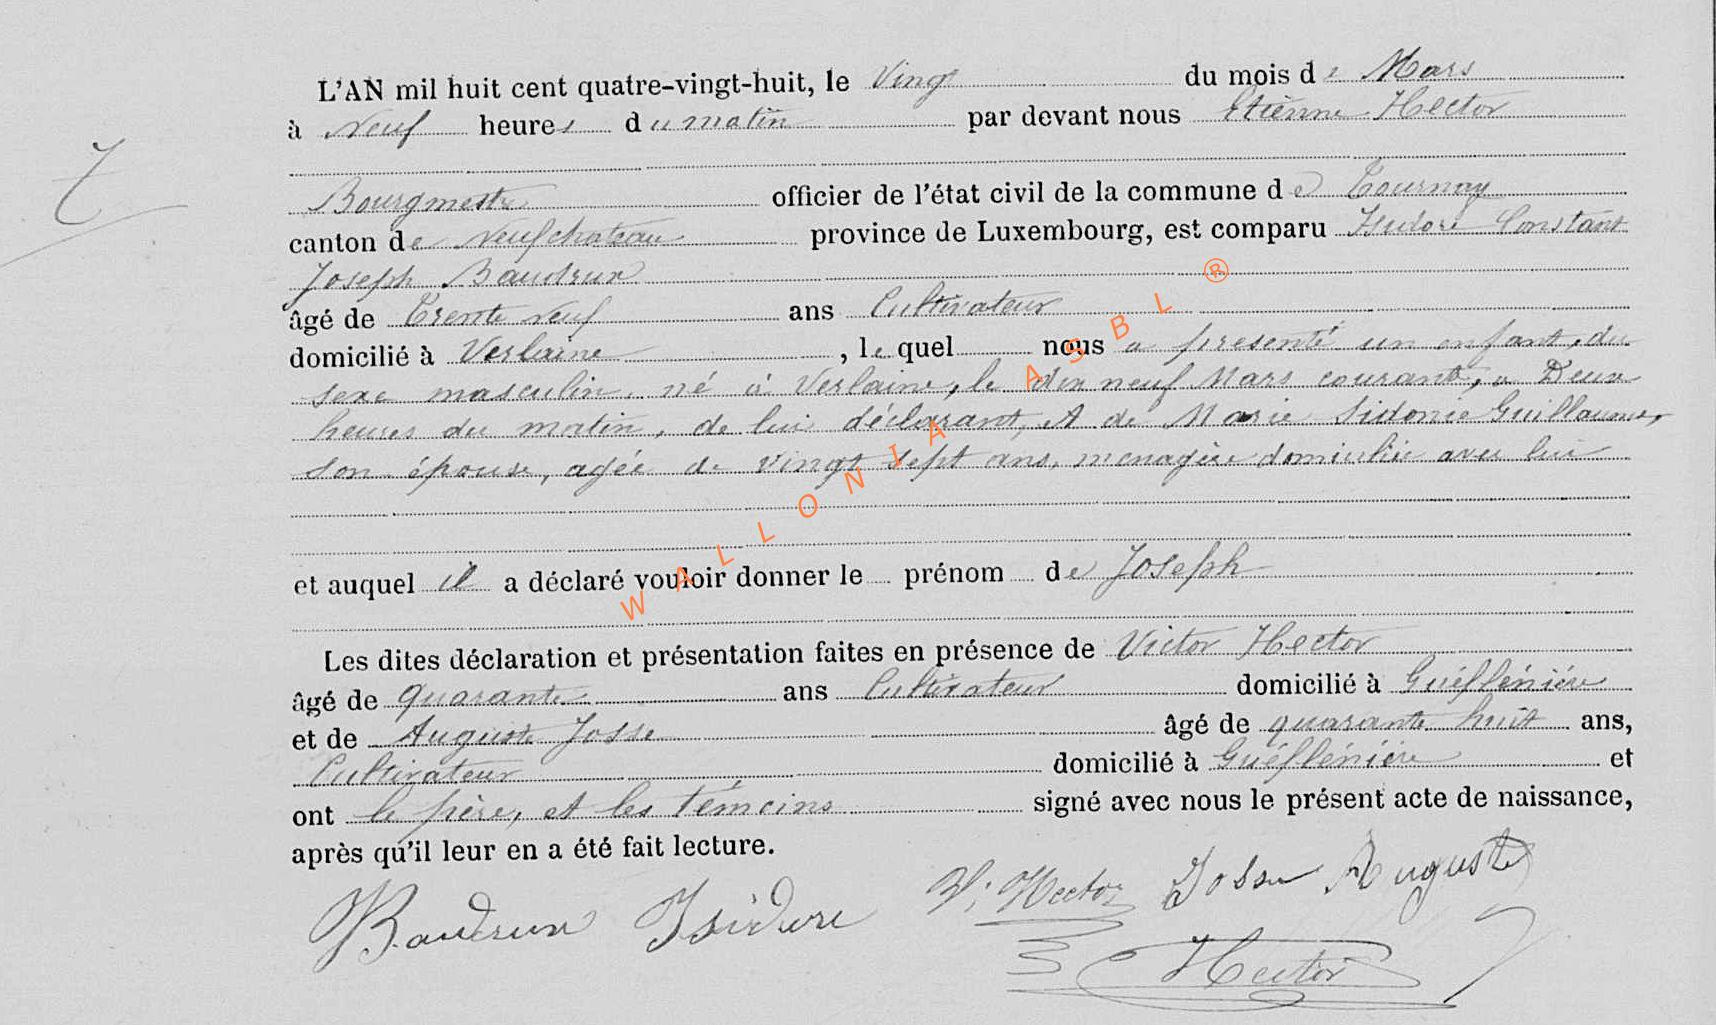 L'AN mil huit cent quatre-vingt-huit, le Vingt du mois de Mars
à Neuf heures du matin par devant nous Etienne Hector
Bourgmestre officier de l'état civil de la commune de Tournay
canton de Neufchateau province de Luxembourg, est comparu Isidore Constant
Joseph Baudrux
âgé de Trente neuf ans Cultivateur
domicilié à Verlaine, lequel nous a présenté un enfant, du
sexe masculin, né à Verlaine, le dix neuf Mars courant, à Deux
heures du matin, de lui déclarant, et de Marie Sidonie Guillaume,
son épouse, agée de vingt sept ans, menagère domiciliée avec lui
et auquel il a déclaré vouloir donner le prénom de Joseph
Les dites déclaration et présentation faites en présence de Victor Hector
âgé de quarante ans Cultivateur domicilié à
et de Auguste Josse âgé de quarante huit ans,
Cultivateur domicilié à et
ont le père, et les témoins signé avec nous le présent acte de naissance,
après qu'il leur en a été fait lecture.
Baudrux Isidore V. Hector Josse Auguste
Hector
7
WALLONIA ASBL ®